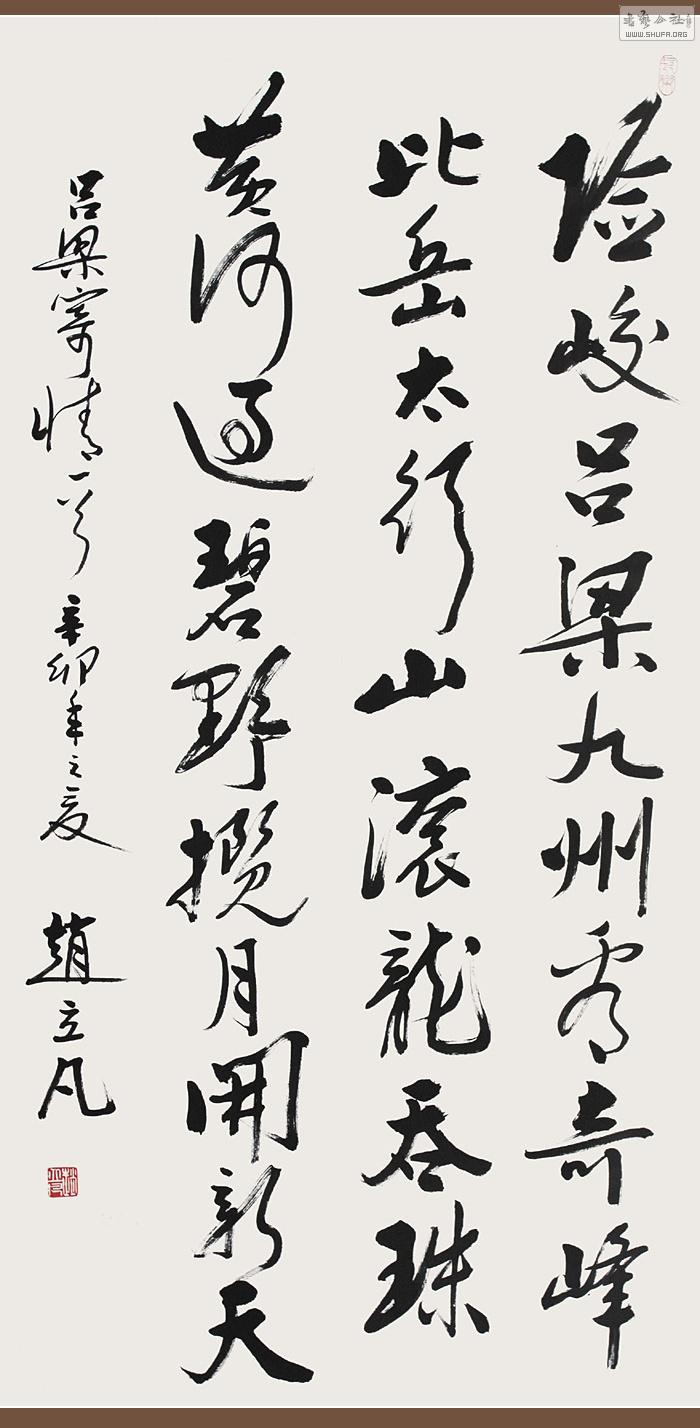 险峻吕梁九州看奇峰
比岳太行山滚龍吞珠
黄河過碧野攬月開新天
吕梁寄情一首 辛卯年之夏 趙立凡
书艺公社
WWW.SHUFA.ORG